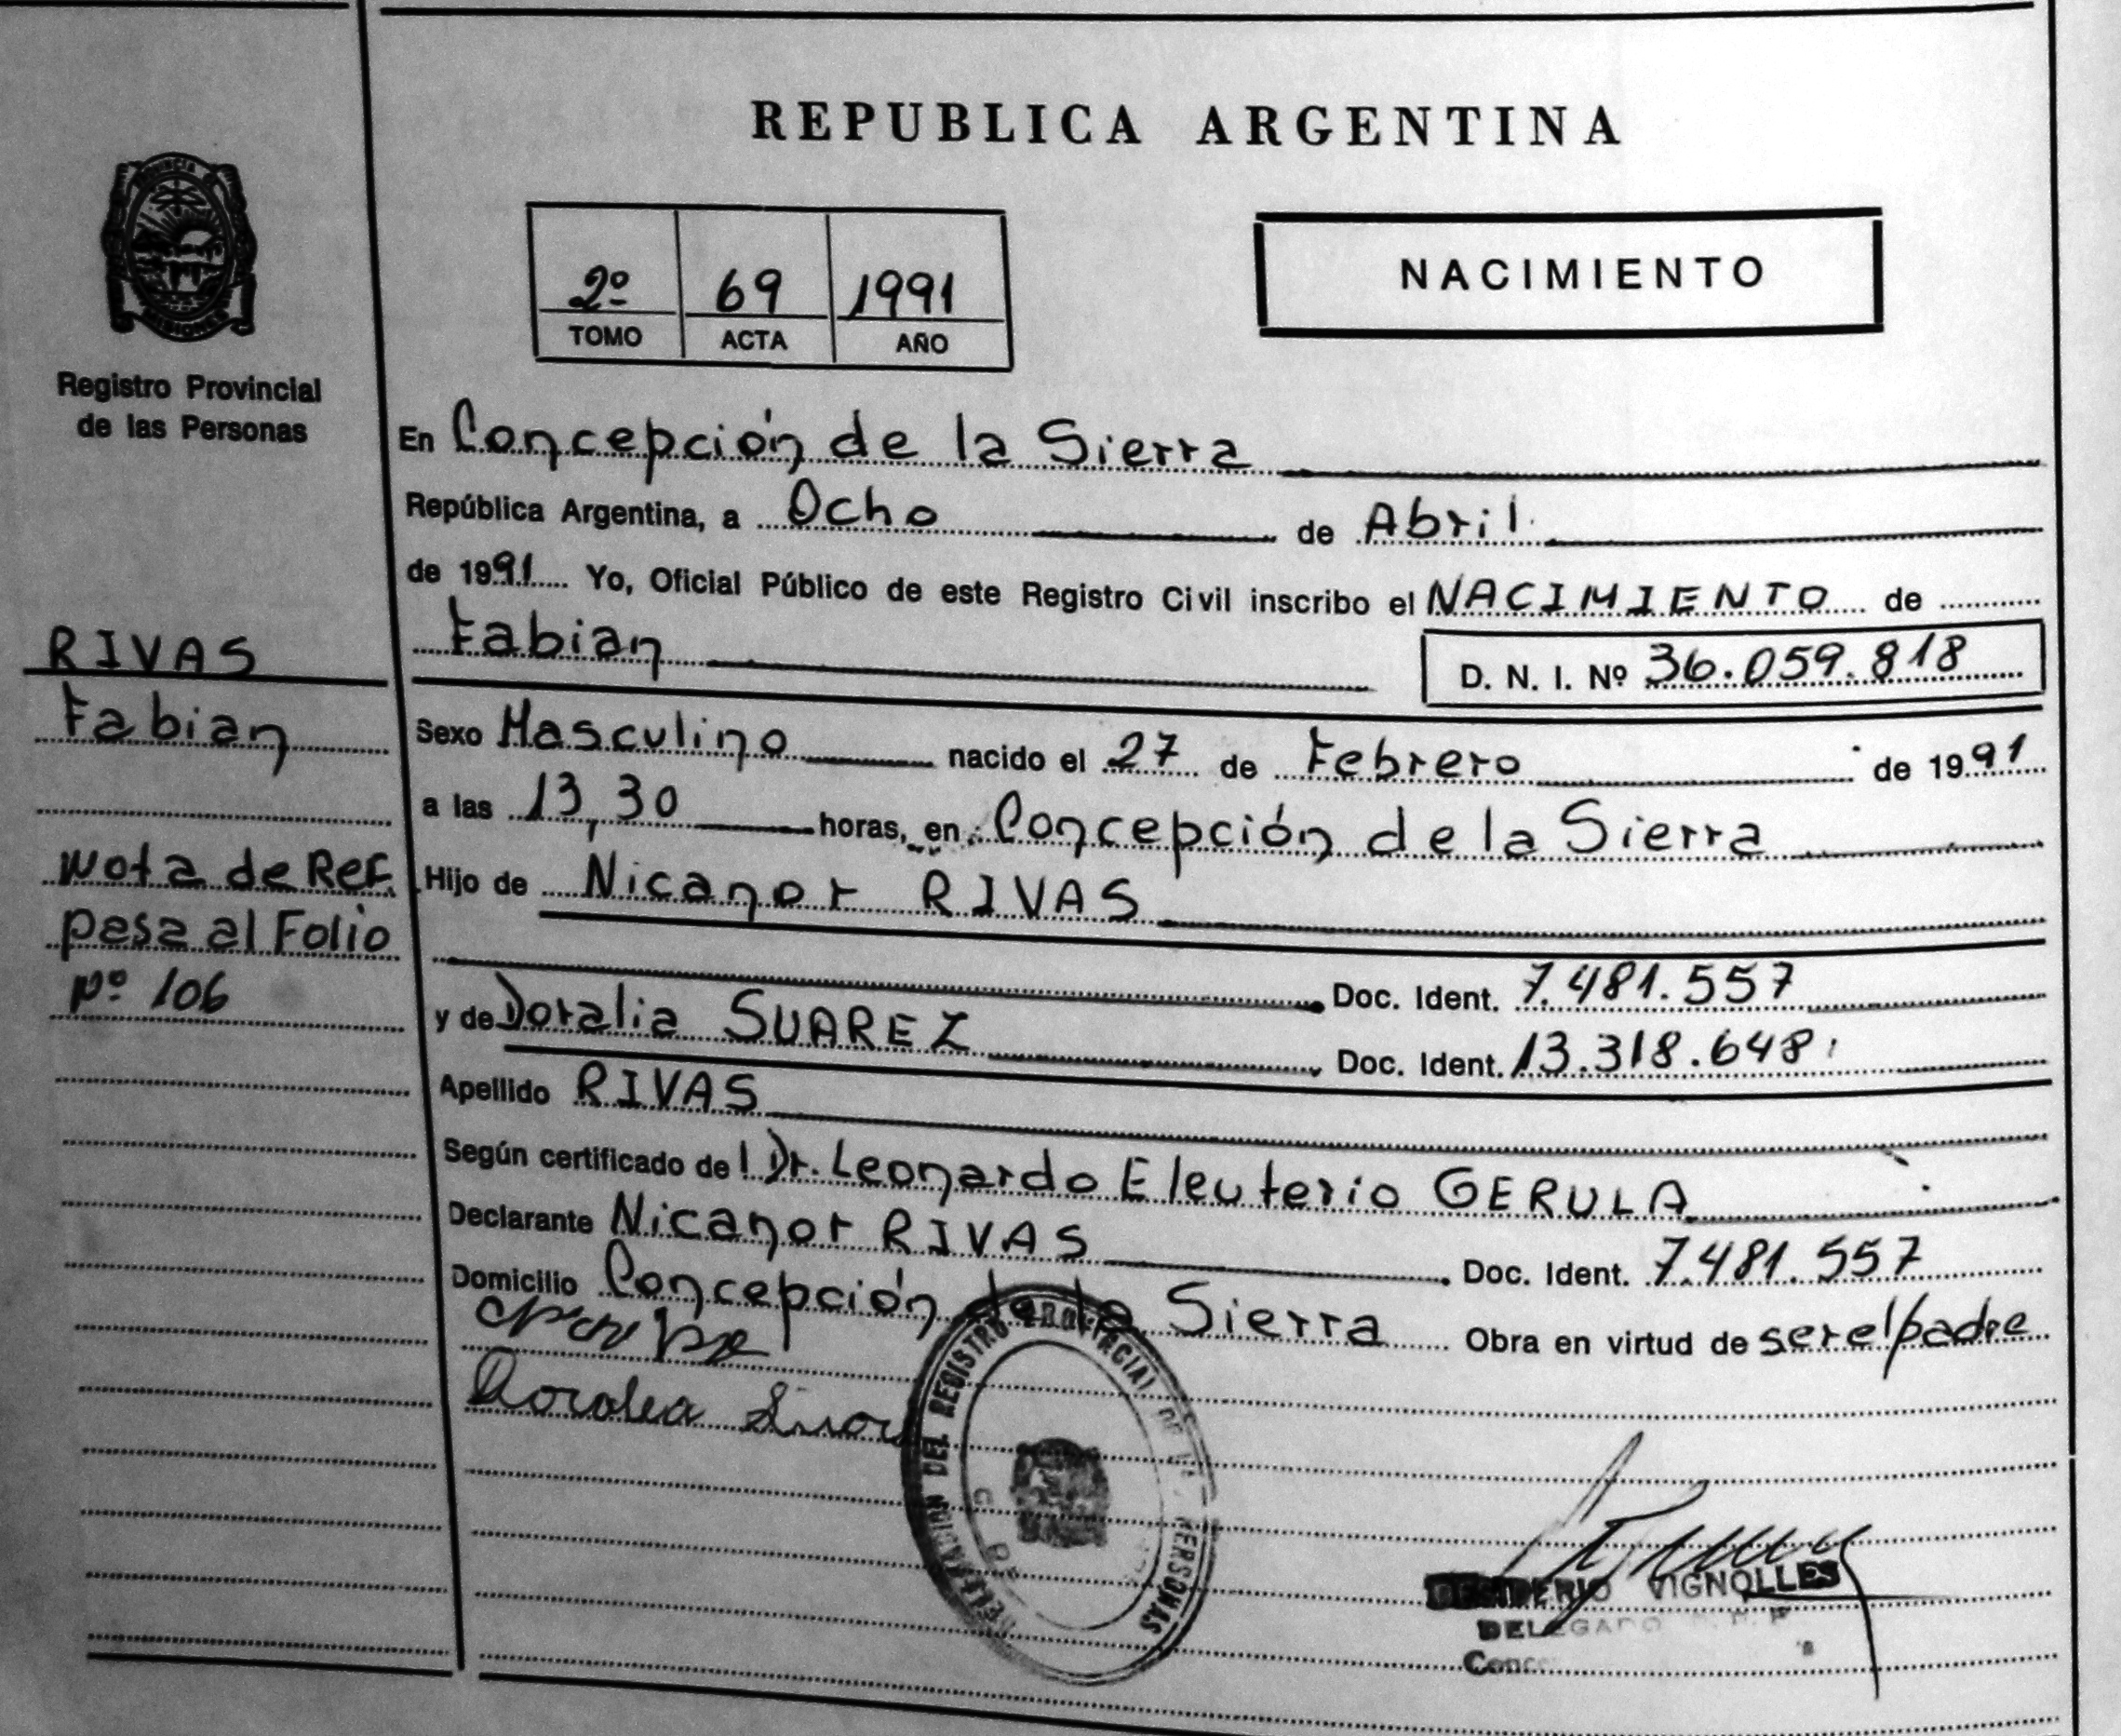 REPUBLICA ARGENTINA
PROVINCIA DE MISIONES
Registro Provincial
de las Personas
2º 69 1991
TOMO ACTA AÑO
NACIMIENTO
En Concepción de la Sierra
República Argentina, a Ocho de Abril
de 1991 Yo, Oficial Público de este Registro Civil inscribo el NACIMIENTO de
Fabian
D. N. I. Nº 36.059.818
RIVAS
Fabian
Nota de Ref.
pasa al Folio
nº 106
Sexo Masculino nacido el 27 de Febrero de 1991
a las 13,30 horas, en Concepción de la Sierra
Hijo de Nicanor RIVAS
Doc. Ident. 7.481.557
y de Doralia SUAREZ Doc. Ident. 13.318.648
Apellido RIVAS
Según certificado de l Dr. Leonardo Eleuterio GERULA
Declarante Nicanor RIVAS Doc. Ident. 7.481.557
Domicilio Concepción de la Sierra Obra en virtud de ser el padre
DELEGACION DEL REGISTRO PROVINCIAL DE LAS PERSONAS
VIGNOLLES
DELEGADO